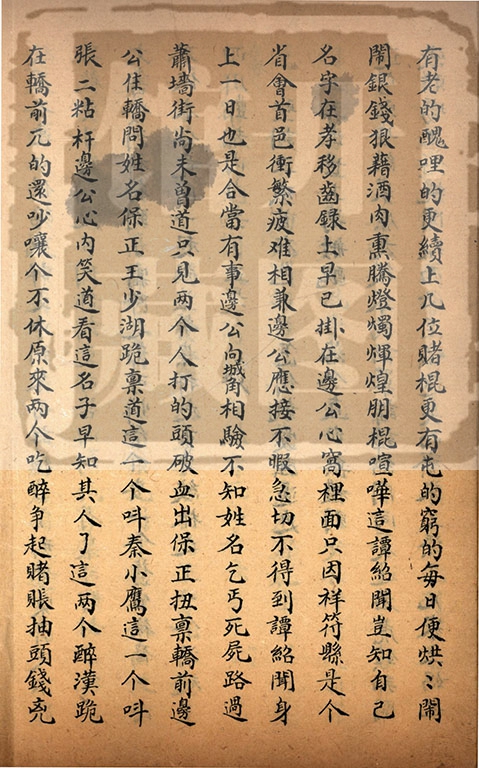 有老的醜哩的更續上几位賭棍更有屯的窮的每日便烘〻鬧
鬧銀錢狠藉酒肉熏騰燈燭煇煌朋棍喧嘩這譚紹聞豈知自己
名字在孝移齒録上早已掛在邊公心窩裡面只因祥符縣是个
省會首邑衝繁疲难相兼邊公應接不暇急切不得到譚紹聞身
上一日也是合當有事邊公向城角相驗不知姓名乞丐死屍路過
蕭墻街尚未曽道只見两个人打的頭破血出保正扭禀轎前邊
公住轎問姓名保正王少湖跪禀道這一个呌秦小鷹這一个呌
張二粘杆邊公心内笑道看這名子早知其人了這两个醉漢跪
在轎前兀的還吵嚷个不休原來两个吃醉争起賭賬抽頭錢堯